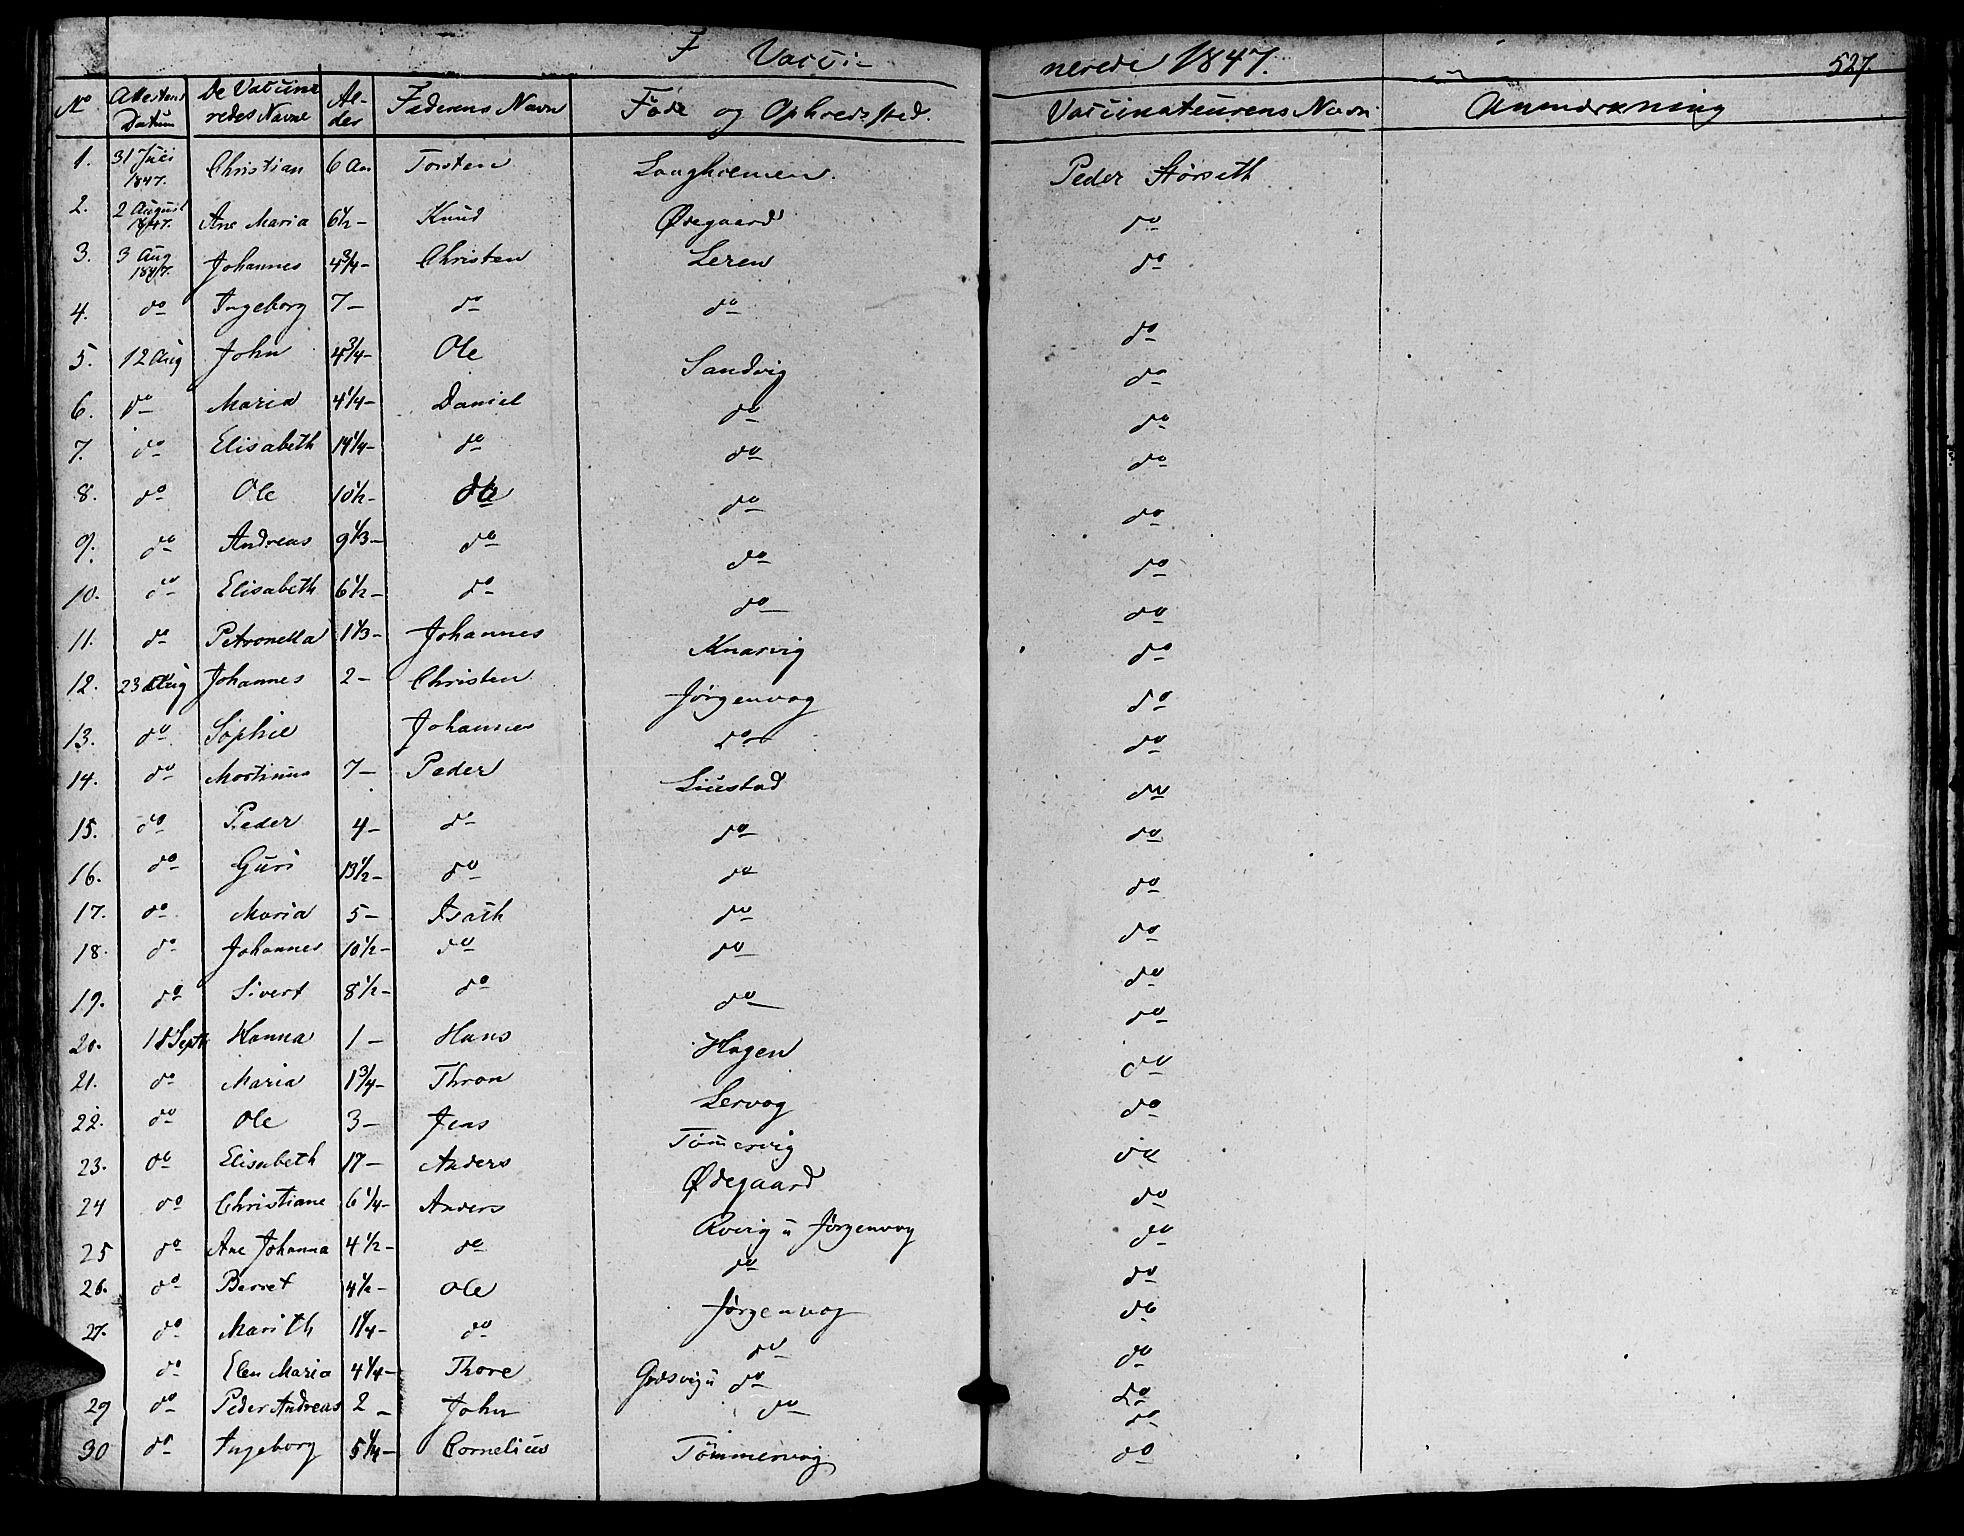 F Vacci- nerede 1847. 527.
No Attestens Datum De Vaccineredes Navne Alder Faderens Navn Føde og Opholdssted. Vaccinateurens Navn Anmærkning
1. 31 Juli 1847. Christian 6 Aar Torsten Langhiemen Peder Størseth
2. 2 August 1847. Ane Maria 6½- Knud Ødegaard do
3. 3 Aug 1847. Johannes 4¾- Christen Leren do
4. do Ingeborg 7- do do do
5. 12 Aug John 4¾- Ole Sandvig do
6. do Maria 4¼- Daniel do do
7. do Elisabeth 14¼- do do do
8. do Ole 10½- do do do
9. do Andreas 9⅓- do do do
10. do Elisabeth 6½- do do do
11. do Petronella 1⅓- Johannes Knarvig do
12. 23 Aug Johannes 2- Christen Jørgenvog do
13. do Sophie Johannes do do
14. do Martinus 7- Peder Liustad do
15. do Peder 4- do do do
16. do Guri 13½- do do do
17. do Maria 5- Isach do do
18. do Johannes 10½- do do do
19. do Sivert 8½- do do do
20. 18 Septr Hanna 1- Hans Hagen do
21. do Maria 1¾- Thron Lervog do
22. do Ole 3- Jens Tømervig do
23. do Elisabeth 17- Anders Ødegaard do
24 do Christiane 6¼- Anders Rvevig u Jørgenvog do
25 do Ane Johanna 4½- do do do
26. do Berret 4½- Ole Jørgenvog do
27. do Marith 1¼- do do do
do Elen Maria 4¼- Thore Grdsvig u do do
29 do Peder Andreas 2- John do do
30 do Ingeborg 5¼- Cornelius Tømmervog do